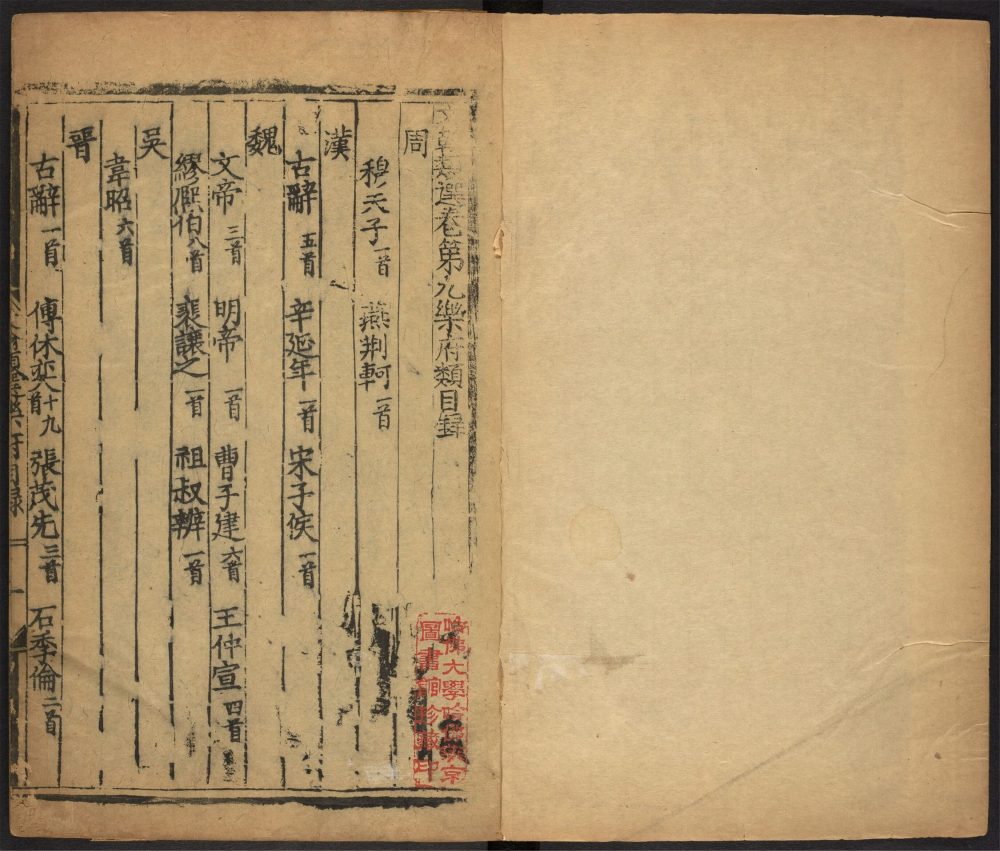 文章類選卷第九樂府類目錄
周
穆天子一首 燕荆軻一首
漢
古辭五首 辛延年一首 宋子侯一首
魏
文帝三首 明帝一首 曹子建六首 王仲宣四首
繆熙伯八首 裴讓之一首 祖叔辨一首
吳
韋昭六首
晉
古辭一首 傅休奕十九首 張茂先三首 石季倫二首
哈佛大學哈佛燕京
圖書館珍藏印